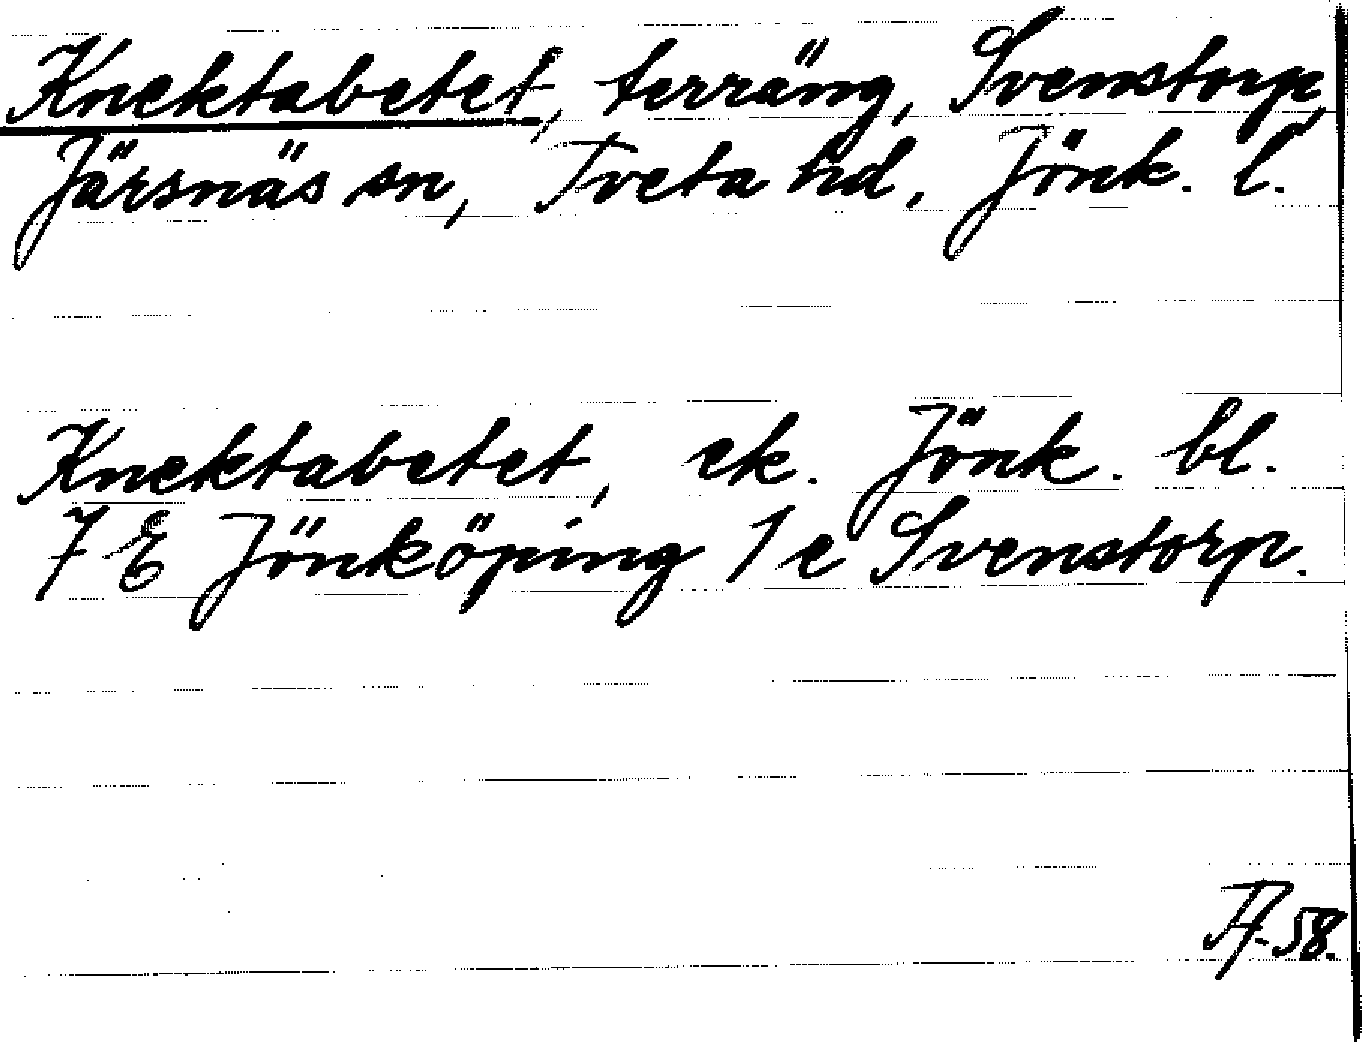 Knektabetet, terräng, Svenstorp,
Järsnäs sn, Tveta hd, Jönk. l.
Knektabetet, ek. Jönk. bl.
7 E Jönköping 1 e Svenstorp.
58.